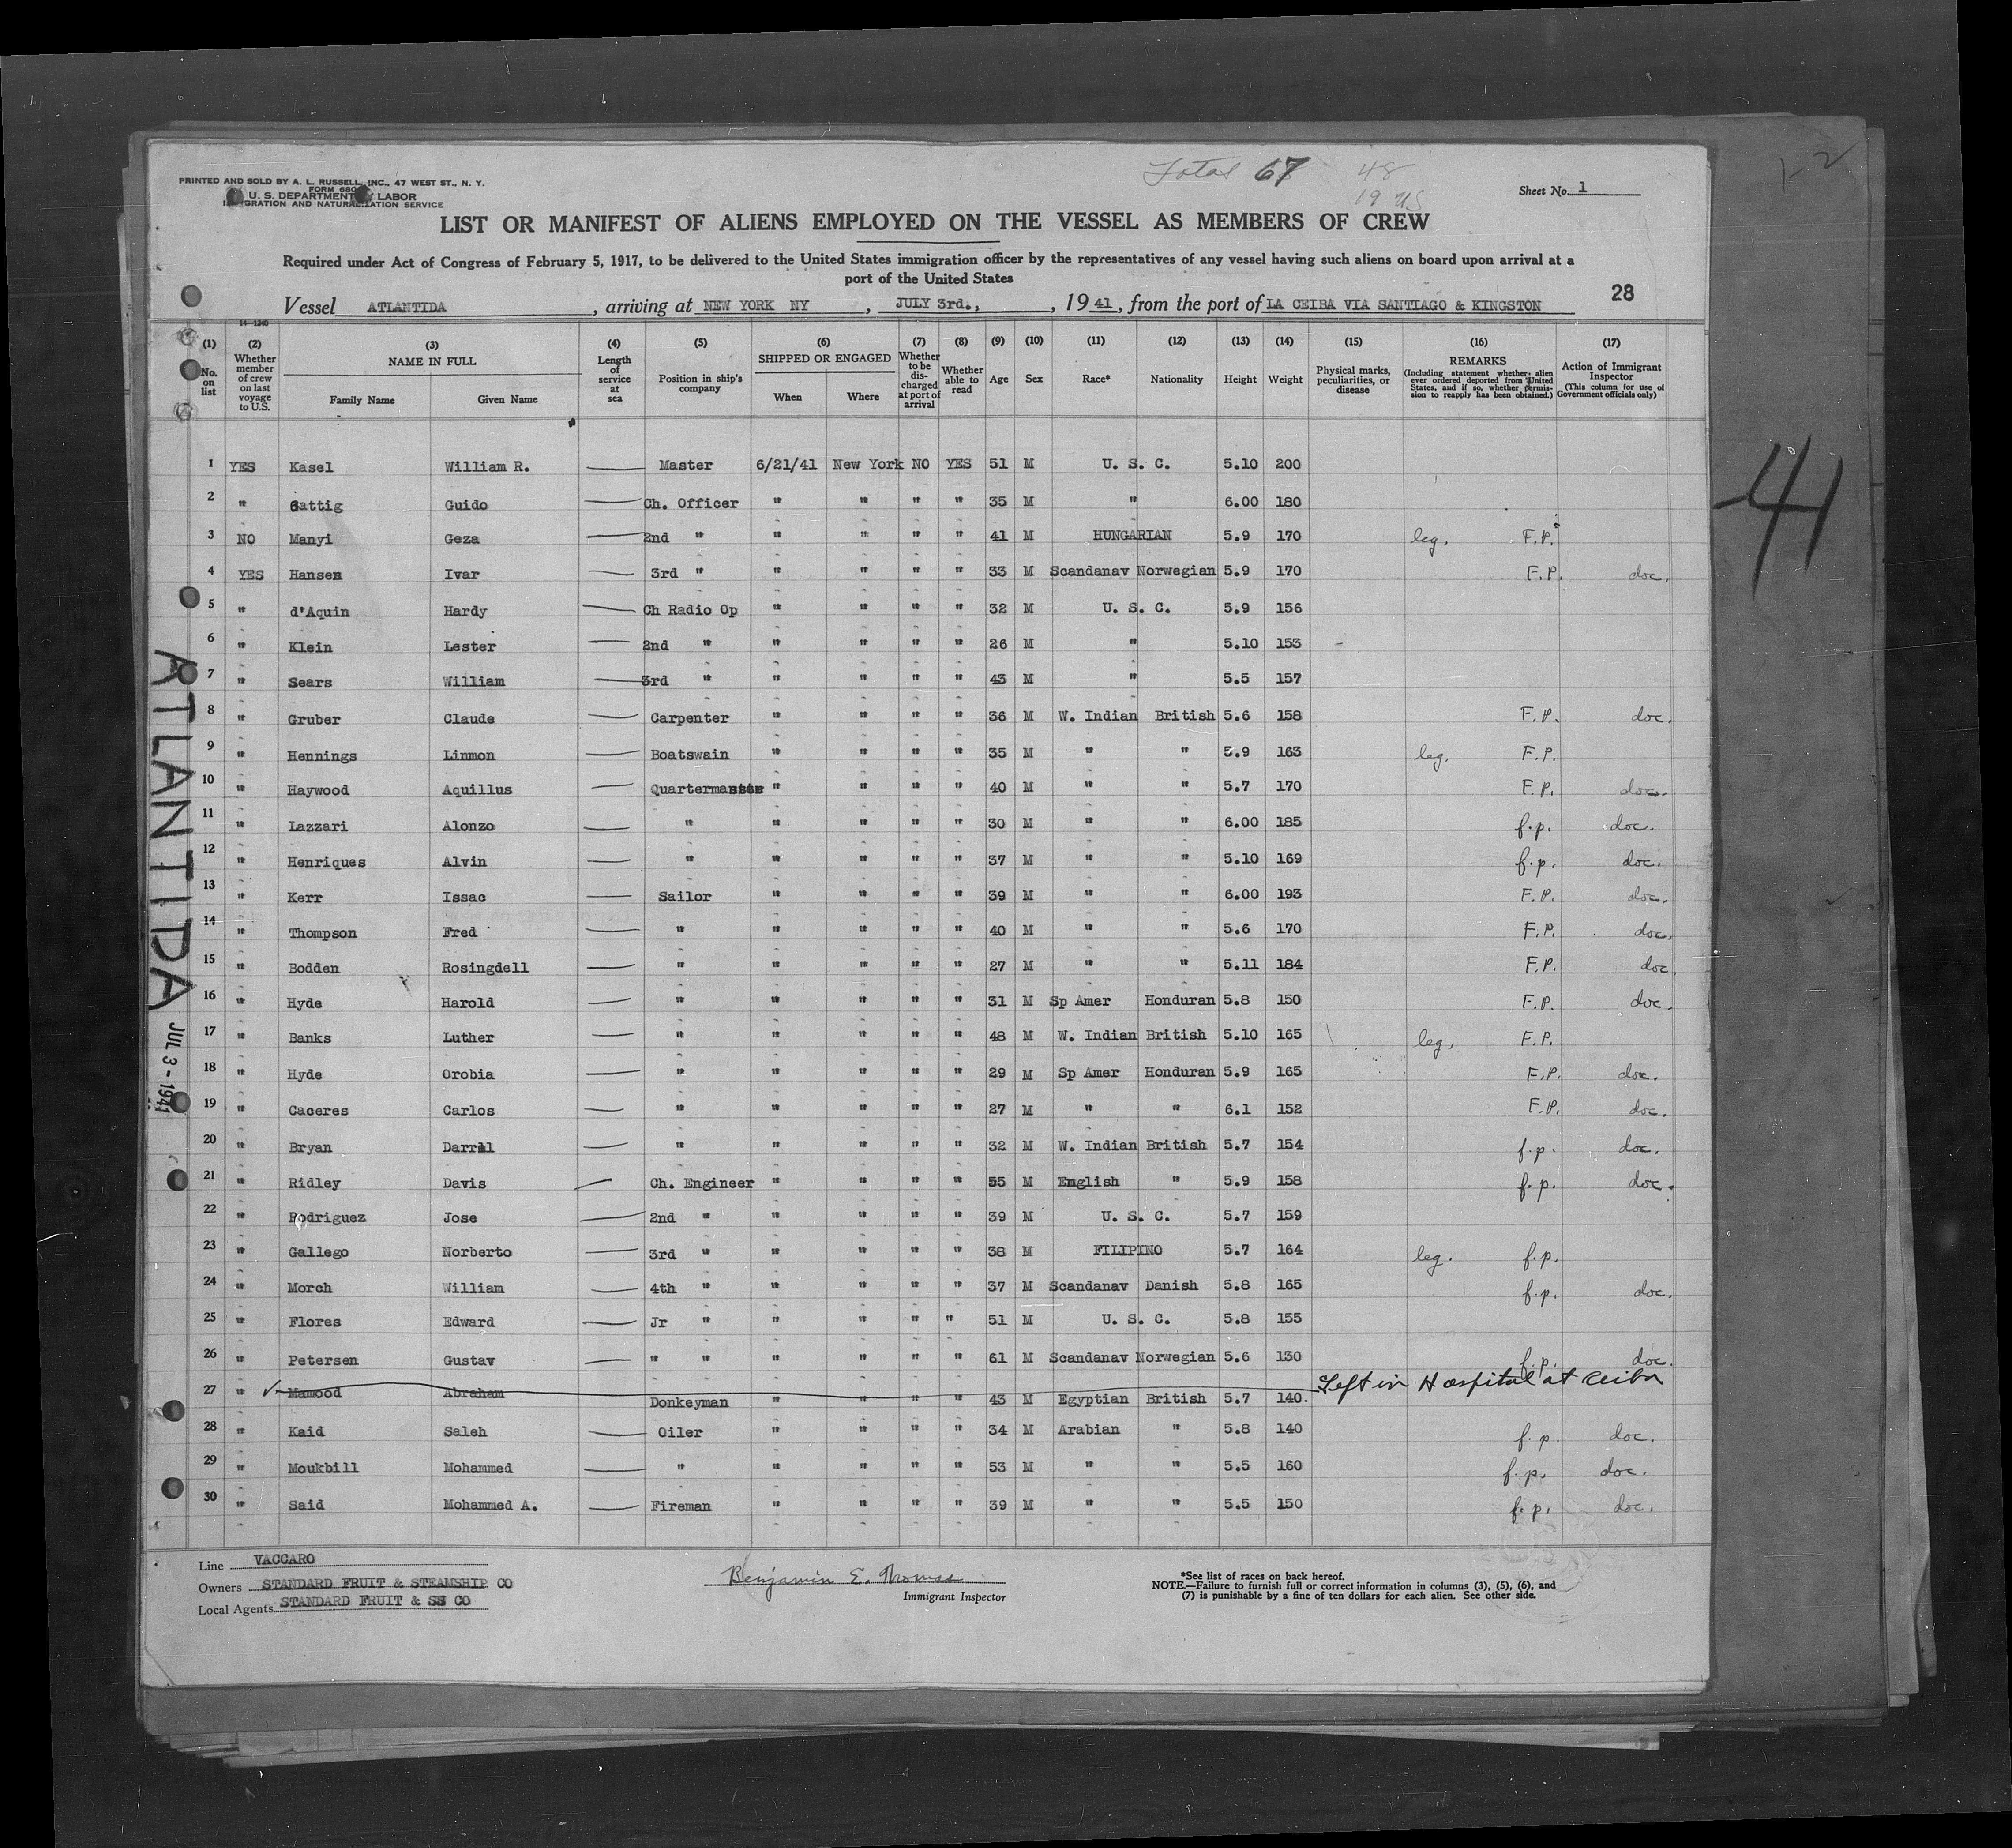 Total 67 48
19 US
PRINTED AND SOLD BY A. L. RUSSELL, INC., 47 WEST ST., N. Y.
FORM 680
U. S. DEPARTMENT LABOR
GRATION AND NATURALIZATION SERVICE
Sheet No. 1
LIST OR MANIFEST OF ALIENS EMPLOYED ON THE VESSEL AS MEMBERS OF CREW
Required under Act of Congress of February 5, 1917, to be delivered to the United States immigration officer by the representatives of any vessel having such aliens on board upon arrival at a
port of the United States
28
Vessel ATLANTIDA, arriving at NEW YORK NY, JULY 3rd., 1941, from the port of LA CEIBA VIA SANTIAGO & KINGSTON
(1) No. on list (2) Whether member of crew on last voyage to U.S. (3) NAME IN FULL Family Name Given Name (4) Length of service at sea (5) Position in ship's company (6) SHIPPED OR ENGAGED When Where (7) Whether to be discharged at port of arrival (8) Whether able to read (9) Age (10) Sex (11) Race* (12) Nationality (13) Height (14) Weight (15) Physical marks, peculiarities, or disease (16) REMARKS (Including statement whether alien ever ordered deported from United States, and if so, whether permission to reapply has been obtained.) (17) Action of Immigrant Inspector (This column for use of Government officials only)
1 YES Kasel William R. Master 6/21/41 New York NO YES 51 M U. S. C. 5.10 200
2 " Gattig Guido Ch. Officer " " " " 35 M " 6.00 180
3 NO Manyi Geza 2nd " " " " " 41 M HUNGARIAN 5.9 170 leg. F.P.
4 YES Hansen Ivar 3rd " " " " " 33 M Scandanav Norwegian 5.9 170 F.P. doc.
5 " d'Aquin Hardy Ch Radio Op " " " " 32 M U. S. C. 5.9 156
6 " Klein Lester 2nd " " " " " 26 M " 5.10 153
7 " Sears William 3rd " " " " " 43 M " 5.5 157
8 " Gruber Claude Carpenter " " " " 36 M W. Indian British 5.6 158 F.P. doc.
9 " Hennings Linmon Boatswain " " " " 35 M " " 5.9 163 leg. F.P.
10 " Haywood Aquillus Quartermaster " " " " 40 M " " 5.7 170 F.P. doc.
11 " Lazzari Alonzo " " " " " 30 M " " 6.00 185 f.p. doc.
12 " Henriques Alvin " " " " " 37 M " " 5.10 169 f.p. doc.
13 " Kerr Issac Sailor " " " " 39 M " " 6.00 193 F.P. doc.
14 " Thompson Fred " " " " " 40 M " " 5.6 170 F.P. doc.
15 " Bodden Rosingdell " " " " " 27 M " " 5.11 184 F.P. doc.
16 " Hyde Harold " " " " " 31 M Sp Amer Honduran 5.8 150 F.P. doc.
17 " Banks Luther " " " " " 48 M W. Indian British 5.10 165 leg. F.P.
18 " Hyde Orobia " " " " " 29 M Sp Amer Honduran 5.9 165 F.P. doc.
19 " Caceres Carlos " " " " " 27 M " " 6.1 152 F.P. doc.
20 " Bryan Darrel " " " " " 32 M W. Indian British 5.7 154 f.p. doc.
21 " Ridley Davis Ch. Engineer " " " " 55 M English " 5.9 158 f.p. doc.
22 " Rodriguez Jose 2nd " " " " " 39 M U. S. C. 5.7 159
23 " Gallego Norberto 3rd " " " " " 38 M FILIPINO 5.7 164 leg. f.p.
24 " Morch William 4th " " " " " 37 M Scandanav Danish 5.8 165 f.p. doc.
25 " Flores Edward Jr " " " " " 51 M U. S. C. 5.8 155
26 " Petersen Gustav " " " " " " 61 M Scandanav Norwegian 5.6 130 f.p. doc.
27 " Mamood Abraham Donkeyman " " " " 43 M Egyptian British 5.7 140. Left in Hospital at Ceiba
28 " Kaid Saleh Oiler " " " " 34 M Arabian " 5.8 140 f.p. doc.
29 " Moukbill Mohammed " " " " " 53 M " " 5.5 160 f.p. doc.
30 " Said Mohammed A. Fireman " " " " 39 M " " 5.5 150 f.p. doc.
Line VACCARO
Owners STANDARD FRUIT & STEAMSHIP CO
Local Agents STANDARD FRUIT & SS CO
Benjamin E. Thomas
Immigrant Inspector
*See list of races on back hereof.
NOTE.—Failure to furnish full or correct information in columns (3), (5), (6), and
(7) is punishable by a fine of ten dollars for each alien. See other side.
ATLANTIDA JUL 3 - 1941
41